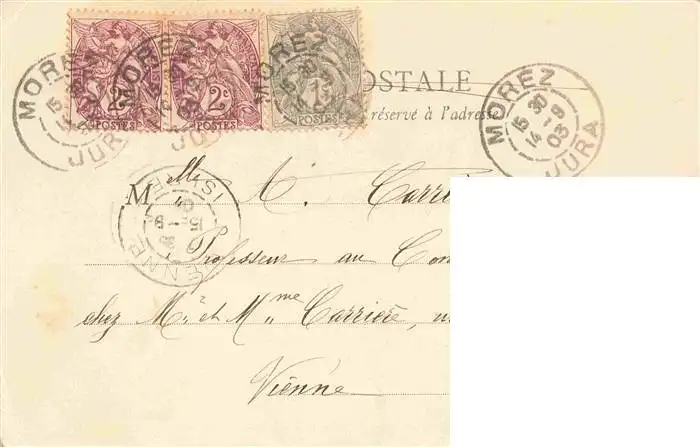 2c
POSTES
2c
POSTES
1c
POSTES
MOREZ
15 30
14 -9
JURA
MOREZ
JURA
MOREZ
MOREZ
15 30
14 -9
03
JURA
POSTALE
réservé à l'adresse
Melle A. Carriè
VIENNE
ISÈRE
Professeur au Con
chez Mr et Mme Carrière,
Vienne